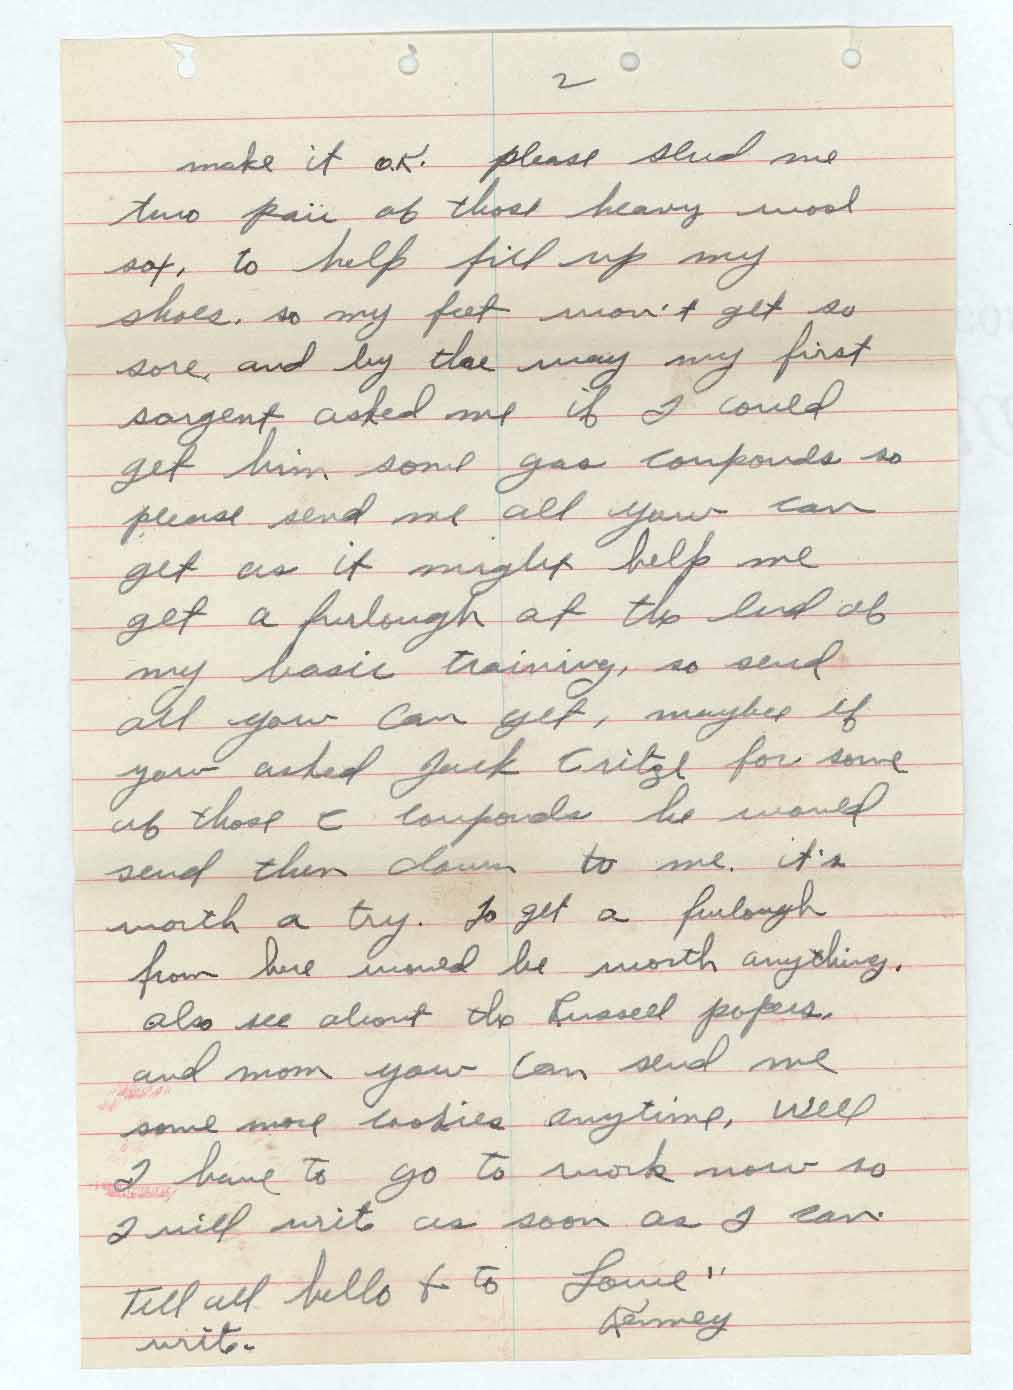 2
make it O.K. please send me
two pair of those heavy wool
sox, to help fill up my
shoes. so my feet won't get so
sore, and by the way my first
sargent asked me if I could
get him some gas couponds so
please send me all yow can
get as it might help me
get a furlough at the end of
my basic training, so send
all yow can get, maybee if
yow asked Jack Critzl for some
of those C couponds he would
send them down to me. it's
worth a try. To get a furlough
from here would be worth anything.
also see about the Russell papers.
and mom yow can send me
some more cookies anytime, Well
I have to go to work now so
I will writ as soon as I can.
Tell all hello & to Love"
writ. Kenney